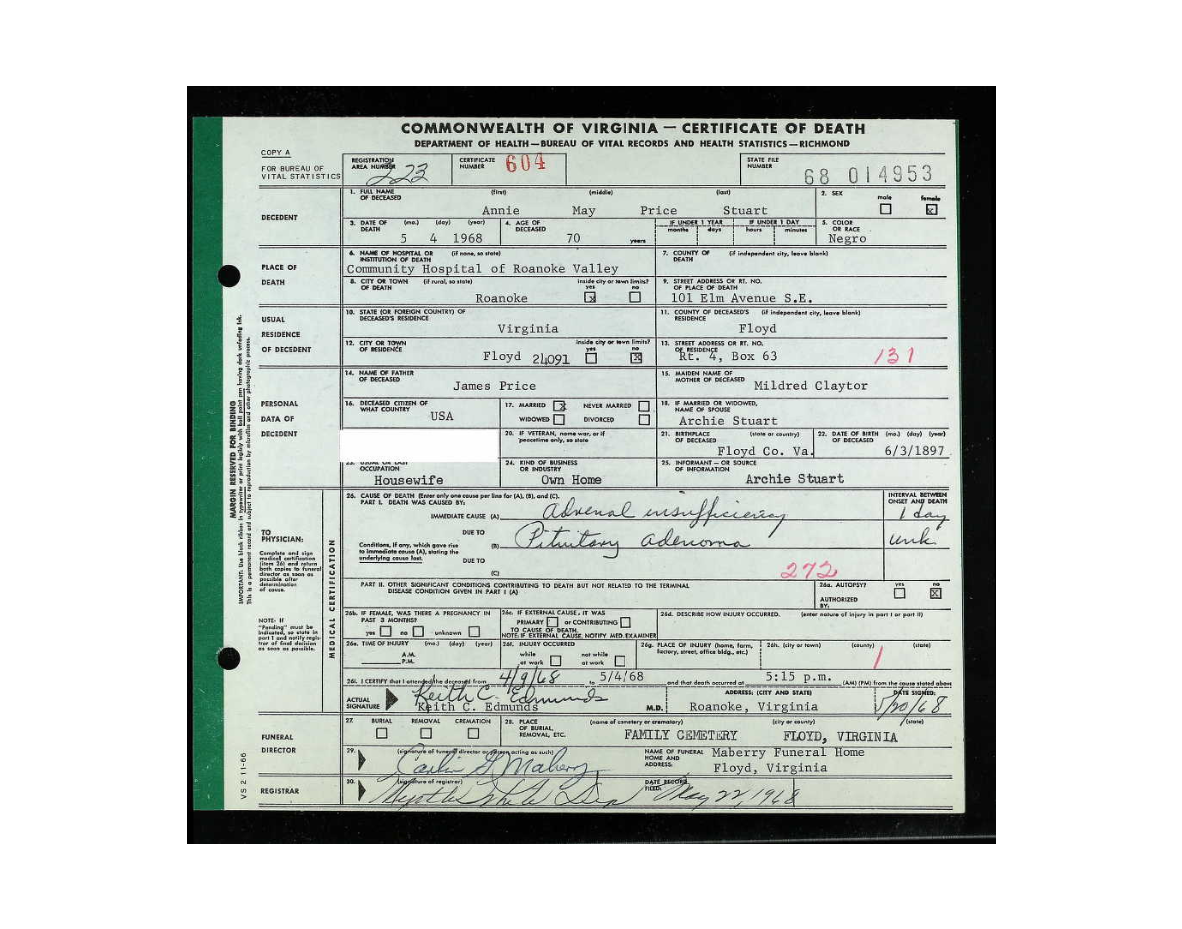 COMMONWEALTH OF VIRGINIA — CERTIFICATE OF DEATH
DEPARTMENT OF HEALTH—BUREAU OF VITAL RECORDS AND HEALTH STATISTICS—RICHMOND
COPY A
FOR BUREAU OF
VITAL STATISTICS
REGISTRATION AREA NUMBER 223
CERTIFICATE NUMBER 604
STATE FILE NUMBER 68 014953
DECEDENT
1. FULL NAME OF DECEASED (first) (middle) (last)
Annie May Price Stuart
2. SEX male female x
3. DATE OF DEATH (mo.) (day) (year)
5 4 1968
4. AGE OF DECEASED
70 years
IF UNDER 1 YEAR months days
IF UNDER 1 DAY hours minutes
5. COLOR OR RACE
Negro
PLACE OF
DEATH
6. NAME OF HOSPITAL OR INSTITUTION OF DEATH (if none, so state)
Community Hospital of Roanoke Valley
7. COUNTY OF DEATH (if independent city, leave blank)
8. CITY OR TOWN OF DEATH (if rural, so state) inside city or town limits? yes no
Roanoke x
9. STREET ADDRESS OR RT. NO. OF PLACE OF DEATH
101 Elm Avenue S.E.
USUAL
RESIDENCE
OF DECEDENT
10. STATE (OR FOREIGN COUNTRY) OF DECEASED'S RESIDENCE
Virginia
11. COUNTY OF DECEASED'S RESIDENCE (if independent city, leave blank)
Floyd
12. CITY OR TOWN OF RESIDENCE inside city or town limits? yes no
Floyd 24091 x
13. STREET ADDRESS OR RT. NO. OF RESIDENCE
Rt. 4, Box 63
131
PERSONAL
DATA OF
DECEDENT
14. NAME OF FATHER OF DECEASED
James Price
15. MAIDEN NAME OF MOTHER OF DECEASED
Mildred Claytor
16. DECEASED CITIZEN OF WHAT COUNTRY
USA
17. MARRIED x NEVER MARRIED
WIDOWED DIVORCED
18. IF MARRIED OR WIDOWED, NAME OF SPOUSE
Archie Stuart
20. IF VETERAN, name war, or if peacetime only, so state
21. BIRTHPLACE OF DECEASED (state or country)
Floyd Co. Va.
22. DATE OF BIRTH OF DECEASED (mo.) (day) (year)
6/3/1897
23. USUAL OR LAST OCCUPATION
Housewife
24. KIND OF BUSINESS OR INDUSTRY
Own Home
25. INFORMANT — OR SOURCE OF INFORMATION
Archie Stuart
MARGIN RESERVED FOR BINDING
IMPORTANT: Use black ribbon in typewriter or print legibly with ball point pen having dark unfading ink.
This is a permanent record and subject to reproduction by microfilm and other photographic process.
TO
PHYSICIAN:
Complete and sign
medical certification
(item 26) and return
both copies to funeral
director as soon as
possible after
determination
of cause.
NOTE: If
"Pending" must be
indicated, so state in
part I and notify regis-
trar of final decision
as soon as possible.
MEDICAL CERTIFICATION
26. CAUSE OF DEATH (Enter only one cause per line for (A), (B), and (C).
PART I. DEATH WAS CAUSED BY:
INTERVAL BETWEEN ONSET AND DEATH
IMMEDIATE CAUSE (A) Adrenal insufficiency 1 day
DUE TO
Conditions, if any, which gave rise to immediate cause (A), stating the underlying cause last.
(B) Pituitary adenoma unk
DUE TO
(C)
272
PART II. OTHER SIGNIFICANT CONDITIONS CONTRIBUTING TO DEATH BUT NOT RELATED TO THE TERMINAL DISEASE CONDITION GIVEN IN PART I (A)
26a. AUTOPSY? yes no x
AUTHORIZED BY:
26b. IF FEMALE, WAS THERE A PREGNANCY IN PAST 3 MONTHS?
yes no unknown
26c. IF EXTERNAL CAUSE, IT WAS
PRIMARY or CONTRIBUTING
TO CAUSE OF DEATH.
NOTE: IF EXTERNAL CAUSE, NOTIFY MED. EXAMINER
26d. DESCRIBE HOW INJURY OCCURRED. (enter nature of injury in part I or part II)
26e. TIME OF INJURY (mo.) (day) (year)
A.M.
P.M.
26f. INJURY OCCURRED
while at work not while at work
26g. PLACE OF INJURY (home, farm, factory, street, office bldg., etc.)
26h. (city or town) (county) (state)
1
26i. I CERTIFY that I attended the deceased from 4/9/68 to 5/4/68 and that death occurred at 5:15 p.m. (AM) (PM) from the cause stated above
ACTUAL SIGNATURE Keith C. Edmunds
Keith C. Edmunds M.D.
ADDRESS: (CITY AND STATE)
Roanoke, Virginia
DATE SIGNED:
5/20/68
FUNERAL
DIRECTOR
27. BURIAL REMOVAL CREMATION
28. PLACE OF BURIAL, REMOVAL, ETC. (name of cemetery or crematory) (city or county) (state)
FAMILY CEMETERY FLOYD, VIRGINIA
29. (signature of funeral director or person acting as such)
NAME OF FUNERAL HOME AND ADDRESS:
Maberry Funeral Home
Floyd, Virginia
REGISTRAR
30. (signature of registrar)
DATE RECORD FILED:
May 22, 1968
VS 2 11-66